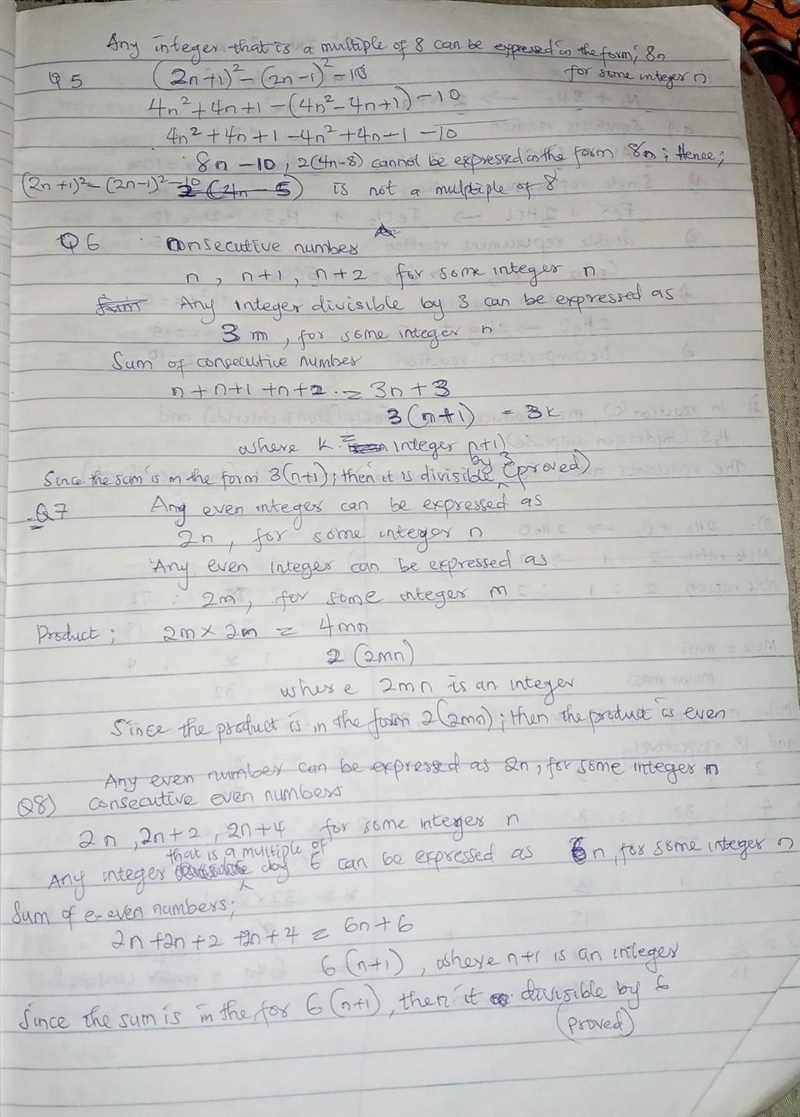 Any integer that is a multiple of 8 can be expressed in the form, 8n
for some integer n
Q5 (2n+1)² - (2n-1)² - 10
4n² + 4n + 1 - (4n² - 4n + 1) - 10
4n² + 4n + 1 - 4n² + 4n - 1 - 10
8n - 10, 2(4n-8) cannot be expressed in the form 8n; Hence;
(2n+1)² - (2n-1)² - 10 2(4n - 5) is not a multiple of 8
Q6 Consecutive number
n, n+1, n+2 for some integer n
Any integer divisible by 3 can be expressed as
3m, for some integer n
Sum of consecutive number
n + n+1 + n+2 = 3n + 3
3(n+1) = 3k
where k = integer n+1)
Since the sum is in the form 3(n+1); then it is divisible by 3 (proved)
Q7 Any even integer can be expressed as
2n, for some integer n
Any even integer can be expressed as
2m, for some integer m
Product; 2m × 2m = 4mn
2(2mn)
where 2mn is an integer
Since the product is in the form 2(2mn); then the product is even
Any even number can be expressed as 2n, for some integer n
Q8) Consecutive even numbers
2n, 2n+2, 2n+4 for some integer n
Any integer that is a multiple of 6 can be expressed as 6n, for some integer n
Sum of e. even numbers;
2n + 2n + 2 + 2n + 4 = 6n + 6
6(n+1), where n+1 is an integer
Since the sum is in the for 6(n+1), then it divisible by 6
(proved)